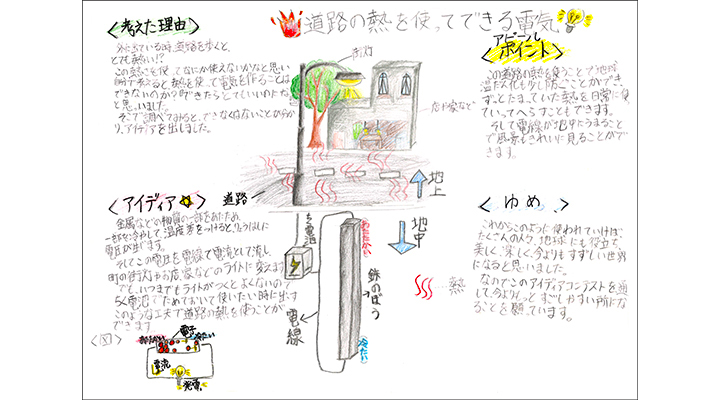 道路の熱を使ってできる電気
<考えた理由>
外に出ている時、道路を歩くと、
とても熱い!?
この熱を使ってなにか使えないかなと思い
熱を使って電気を作ることは
できないのか?できたらとてもいいのにな
と思いました。
そこで調べてみると、できなくはないことが分か
り、アイディアを出しました。
<アイディア>
金属などの物質の一部をあたため、
一部を冷やして、温度差をつけると、りょうはしに
電圧が出ます。
そしてこの電圧を電線で電流として流し、
町の街灯やお店、家などのライトに変えます
でも、いつまでもライトがつくとよくないので
ちく電池でためておいて使いたい時に出す
このような工夫で道路の熱を使うことが
できます。
<図>
電子
あたたかい
冷たい
電流
発電
街灯
店や家など
道路
地上
地中
ちく電池
あたたかい
鉄のぼう
電線
冷たい
熱
アピール
ポイント
この道路の熱を使うことで地球
温だん化も少し防ぐことができ
ます。たまっていた熱を日常に使
っていってへらすこともできます。
そして電線が地中にうまること
で風景もきれいに見ることがで
きます。
<ゆめ>
これからこのように使われていけば、
たくさんの人や、地球にも役立ち、
美しく、楽しく、今よりもすずしい世界
になると思いました。
なのでこのアイディアコンテストを通
して、今よりもっとすごしやすい所にな
ることを願っています。